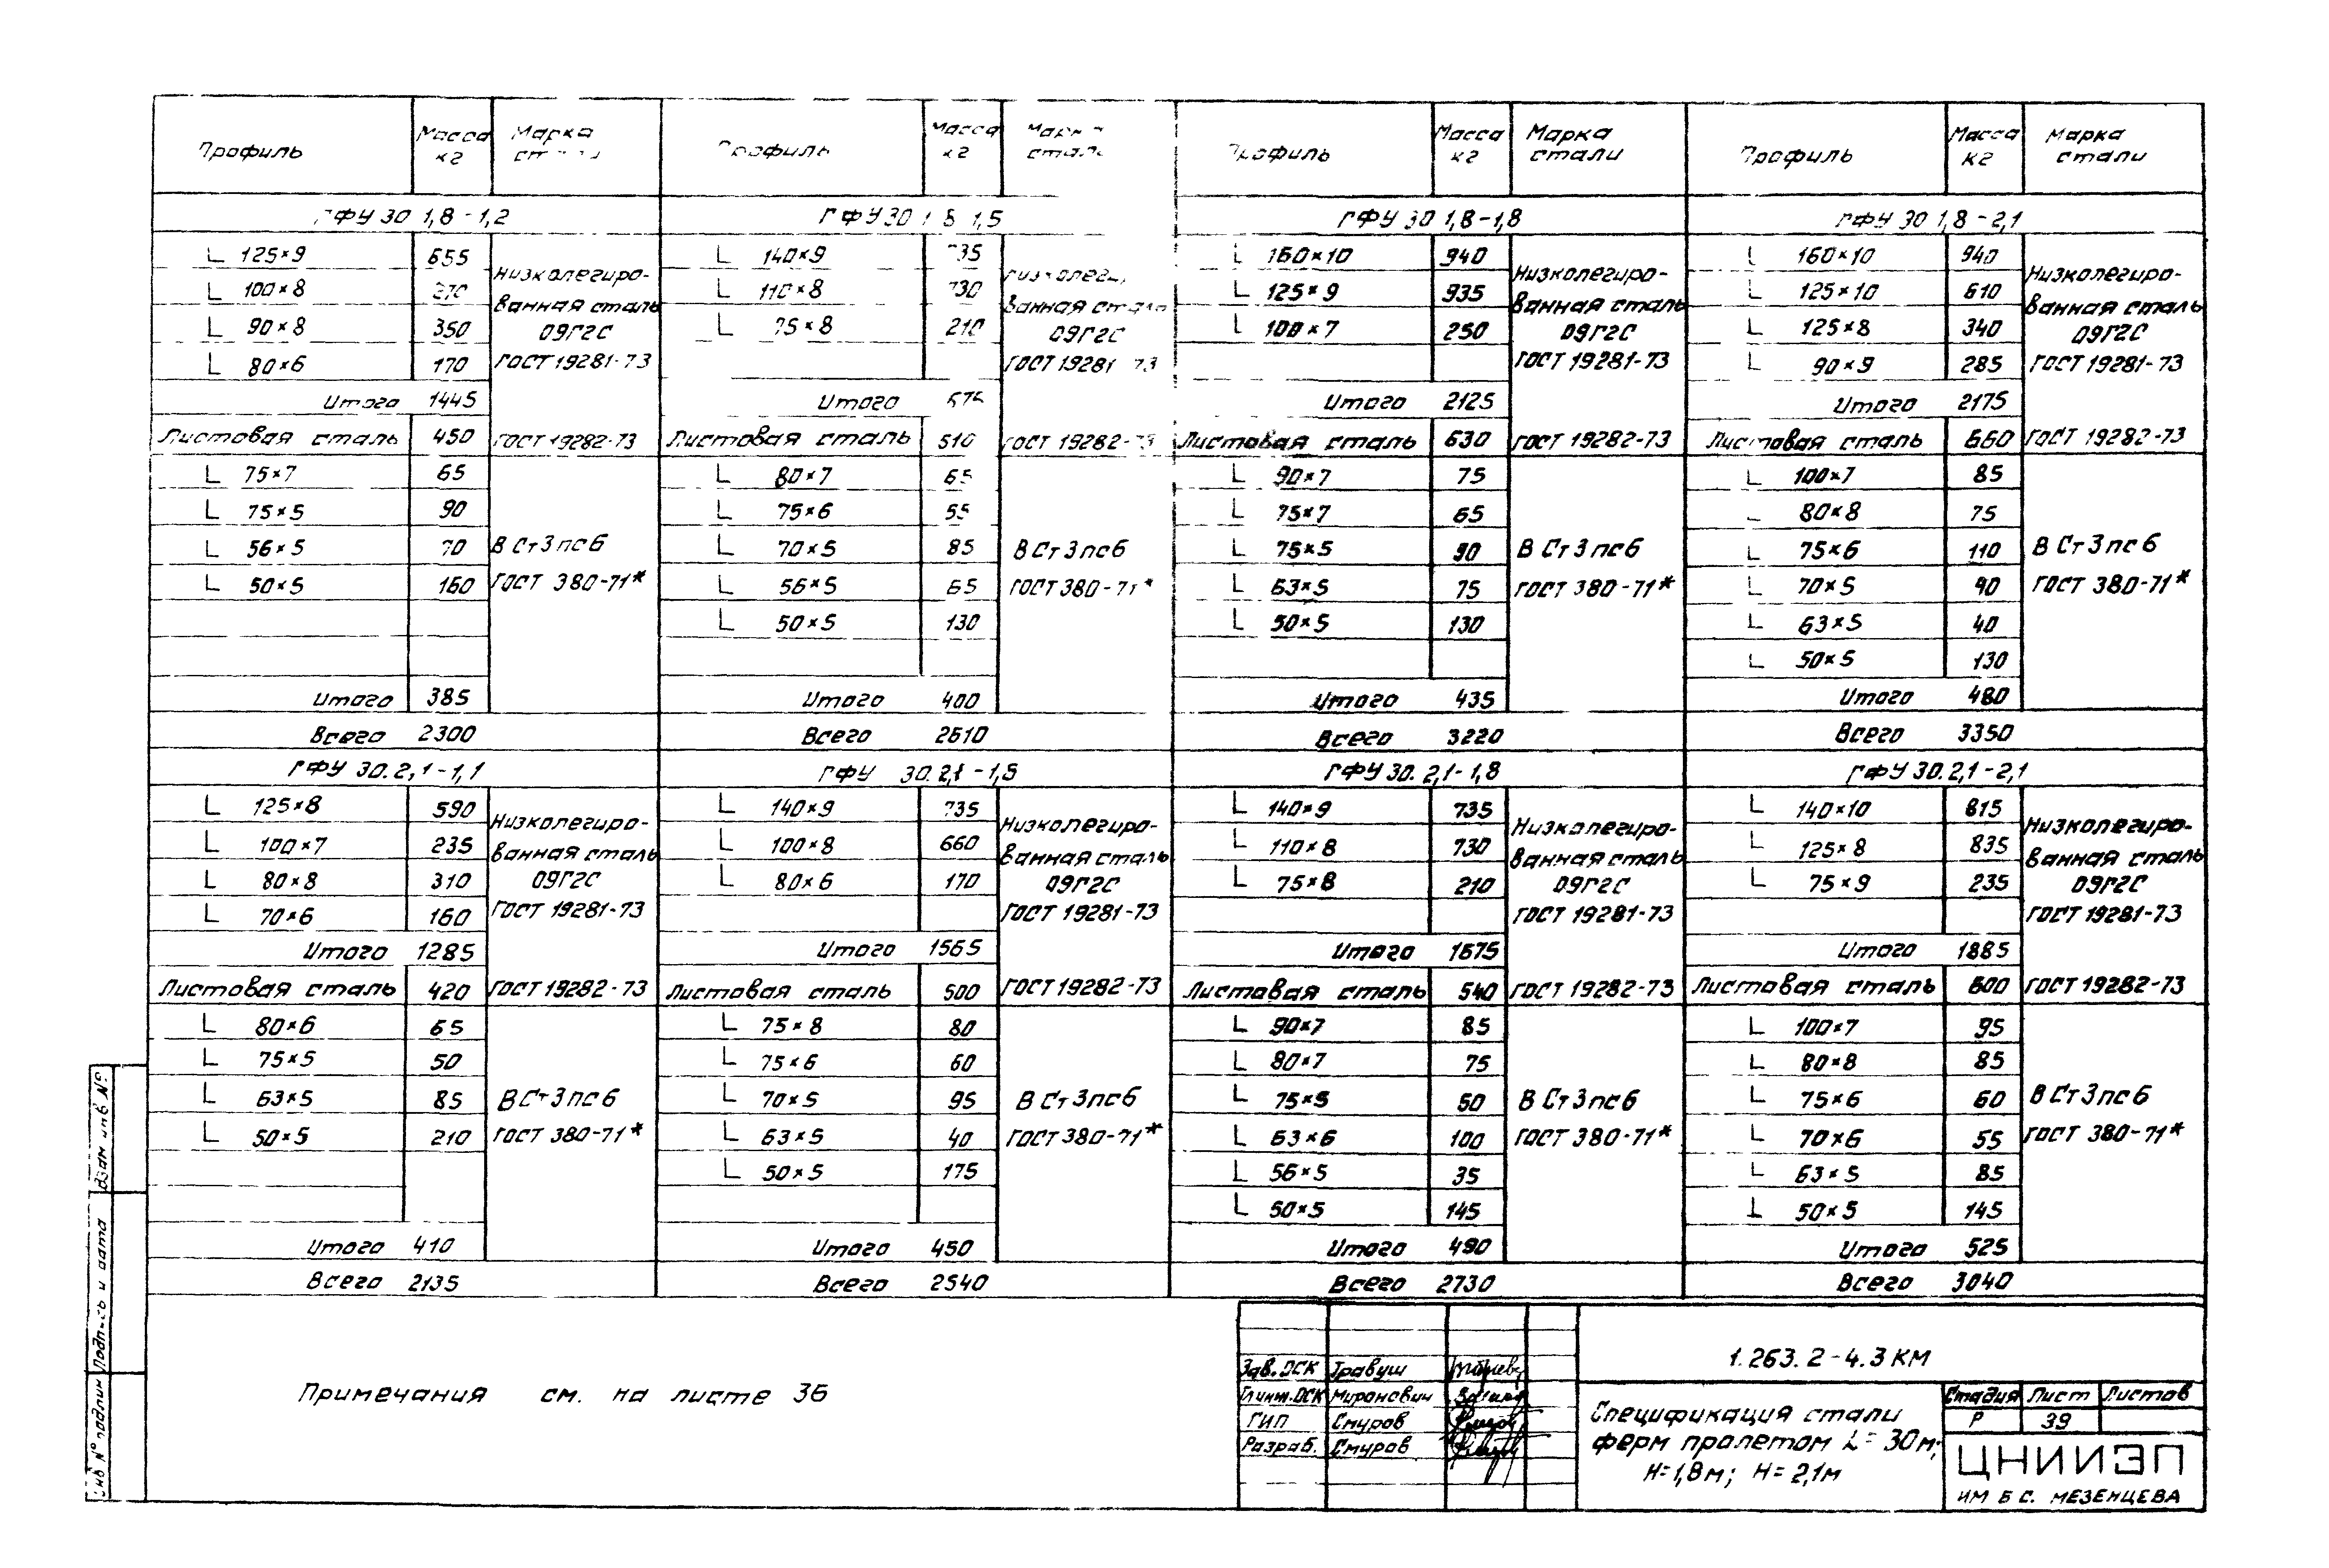 Профиль Масса кг Марка стали Профиль Масса кг Марка стали Профиль Масса кг Марка стали Профиль Масса кг Марка стали
ГФУ 30 1,8-1,2 ГФУ 30 1,8 1,5 ГФУ 30 1,8-1,8 ГФУ 30 1,8-2,1
L 125×9 655 L 140×9 735 L 160×10 940 L 160×10 940
Низколегиро- Низколеги Низколегиро- Низколегиро-
L 100×8 270 L 110×8 730 L 125×9 935 L 125×10 610
ванная сталь ванная сталь ванная сталь ванная сталь
L 90×8 350 L 75×8 210 L 100×7 250 L 125×8 340
09Г2С 09Г2С 09Г2С 09Г2С
L 80×6 170 L 90×9 285
ГОСТ 19281-73 ГОСТ 19281-73 ГОСТ 19281-73 ГОСТ 19281-73
Итого 1445 Итого 675 Итого 2125 Итого 2175
Листовая сталь 450 ГОСТ 19282-73 Листовая сталь 510 ГОСТ 19282-73 Листовая сталь 630 ГОСТ 19282-73 Листовая сталь 660 ГОСТ 19282-73
L 75×7 65 L 80×7 65 L 90×7 75 L 100×7 85
L 75×5 90 L 75×6 55 L 75×7 65 L 80×8 75
L 56×5 70 В Ст3пс6 L 70×5 85 В Ст3пс6 L 75×5 90 В Ст3пс6 L 75×6 110 В Ст3пс6
L 50×5 160 ГОСТ 380-71* L 56×5 65 ГОСТ 380-71* L 63×5 75 ГОСТ 380-71* L 70×5 40 ГОСТ 380-71*
L 50×5 130 L 50×5 130 L 63×5 40
L 50×5 130
Итого 385 Итого 400 Итого 435 Итого 480
Всего 2300 Всего 2610 Всего 3220 Всего 3350
ГФУ 30.2,1-1,1 ГФУ 30.2,1-1,5 ГФУ 30.2,1-1,8 ГФУ 30.2,1-2,1
L 125×8 590 L 140×9 735 L 140×9 735 L 140×10 815
Низколегиро- Низколегиро- Низколегиро- Низколегиро-
L 100×7 235 L 100×8 660 L 110×8 730 L 125×8 835
ванная сталь ванная сталь ванная сталь ванная сталь
L 80×8 310 L 80×6 170 L 75×8 210 L 75×9 235
09Г2С 09Г2С 09Г2С 09Г2С
L 70×6 160
ГОСТ 19281-73 ГОСТ 19281-73 ГОСТ 19281-73 ГОСТ 19281-73
Итого 1285 Итого 1565 Итого 1675 Итого 1885
Листовая сталь 420 ГОСТ 19282-73 Листовая сталь 500 ГОСТ 19282-73 Листовая сталь 540 ГОСТ 19282-73 Листовая сталь 600 ГОСТ 19282-73
L 80×6 65 L 75×8 80 L 90×7 85 L 100×7 95
L 75×5 50 L 75×6 60 L 80×7 75 L 80×8 85
L 63×5 85 ВСт3пс6 L 70×5 95 В Ст3пс6 L 75×5 50 В Ст3пс6 L 75×6 60 В Ст3пс6
L 50×5 210 ГОСТ 380-71* L 63×5 40 ГОСТ 380-71* L 63×6 100 ГОСТ 380-71* L 70×6 55 ГОСТ 380-71*
L 50×5 175 L 56×5 35 L 63×5 85
L 50×5 145 L 50×5 145
Итого 410 Итого 450 Итого 490 Итого 525
Всего 2135 Всего 2540 Всего 2730 Всего 3040
Примечания см. на листе 36
Взам инв №
Подпись и дата
Инв № подлин
Зав. ОСК Травуш
Гл инж. ОСК Миронович
ГИП Смуров
Разраб. Смуров
1.263.2-4.3 КМ
Спецификация стали
ферм пролетом L=30м;
Н=1,8м; Н=2,1м
Стадия Лист Листов
Р 39
ЦНИИЭП
ИМ Б С. МЕЗЕНЦЕВА